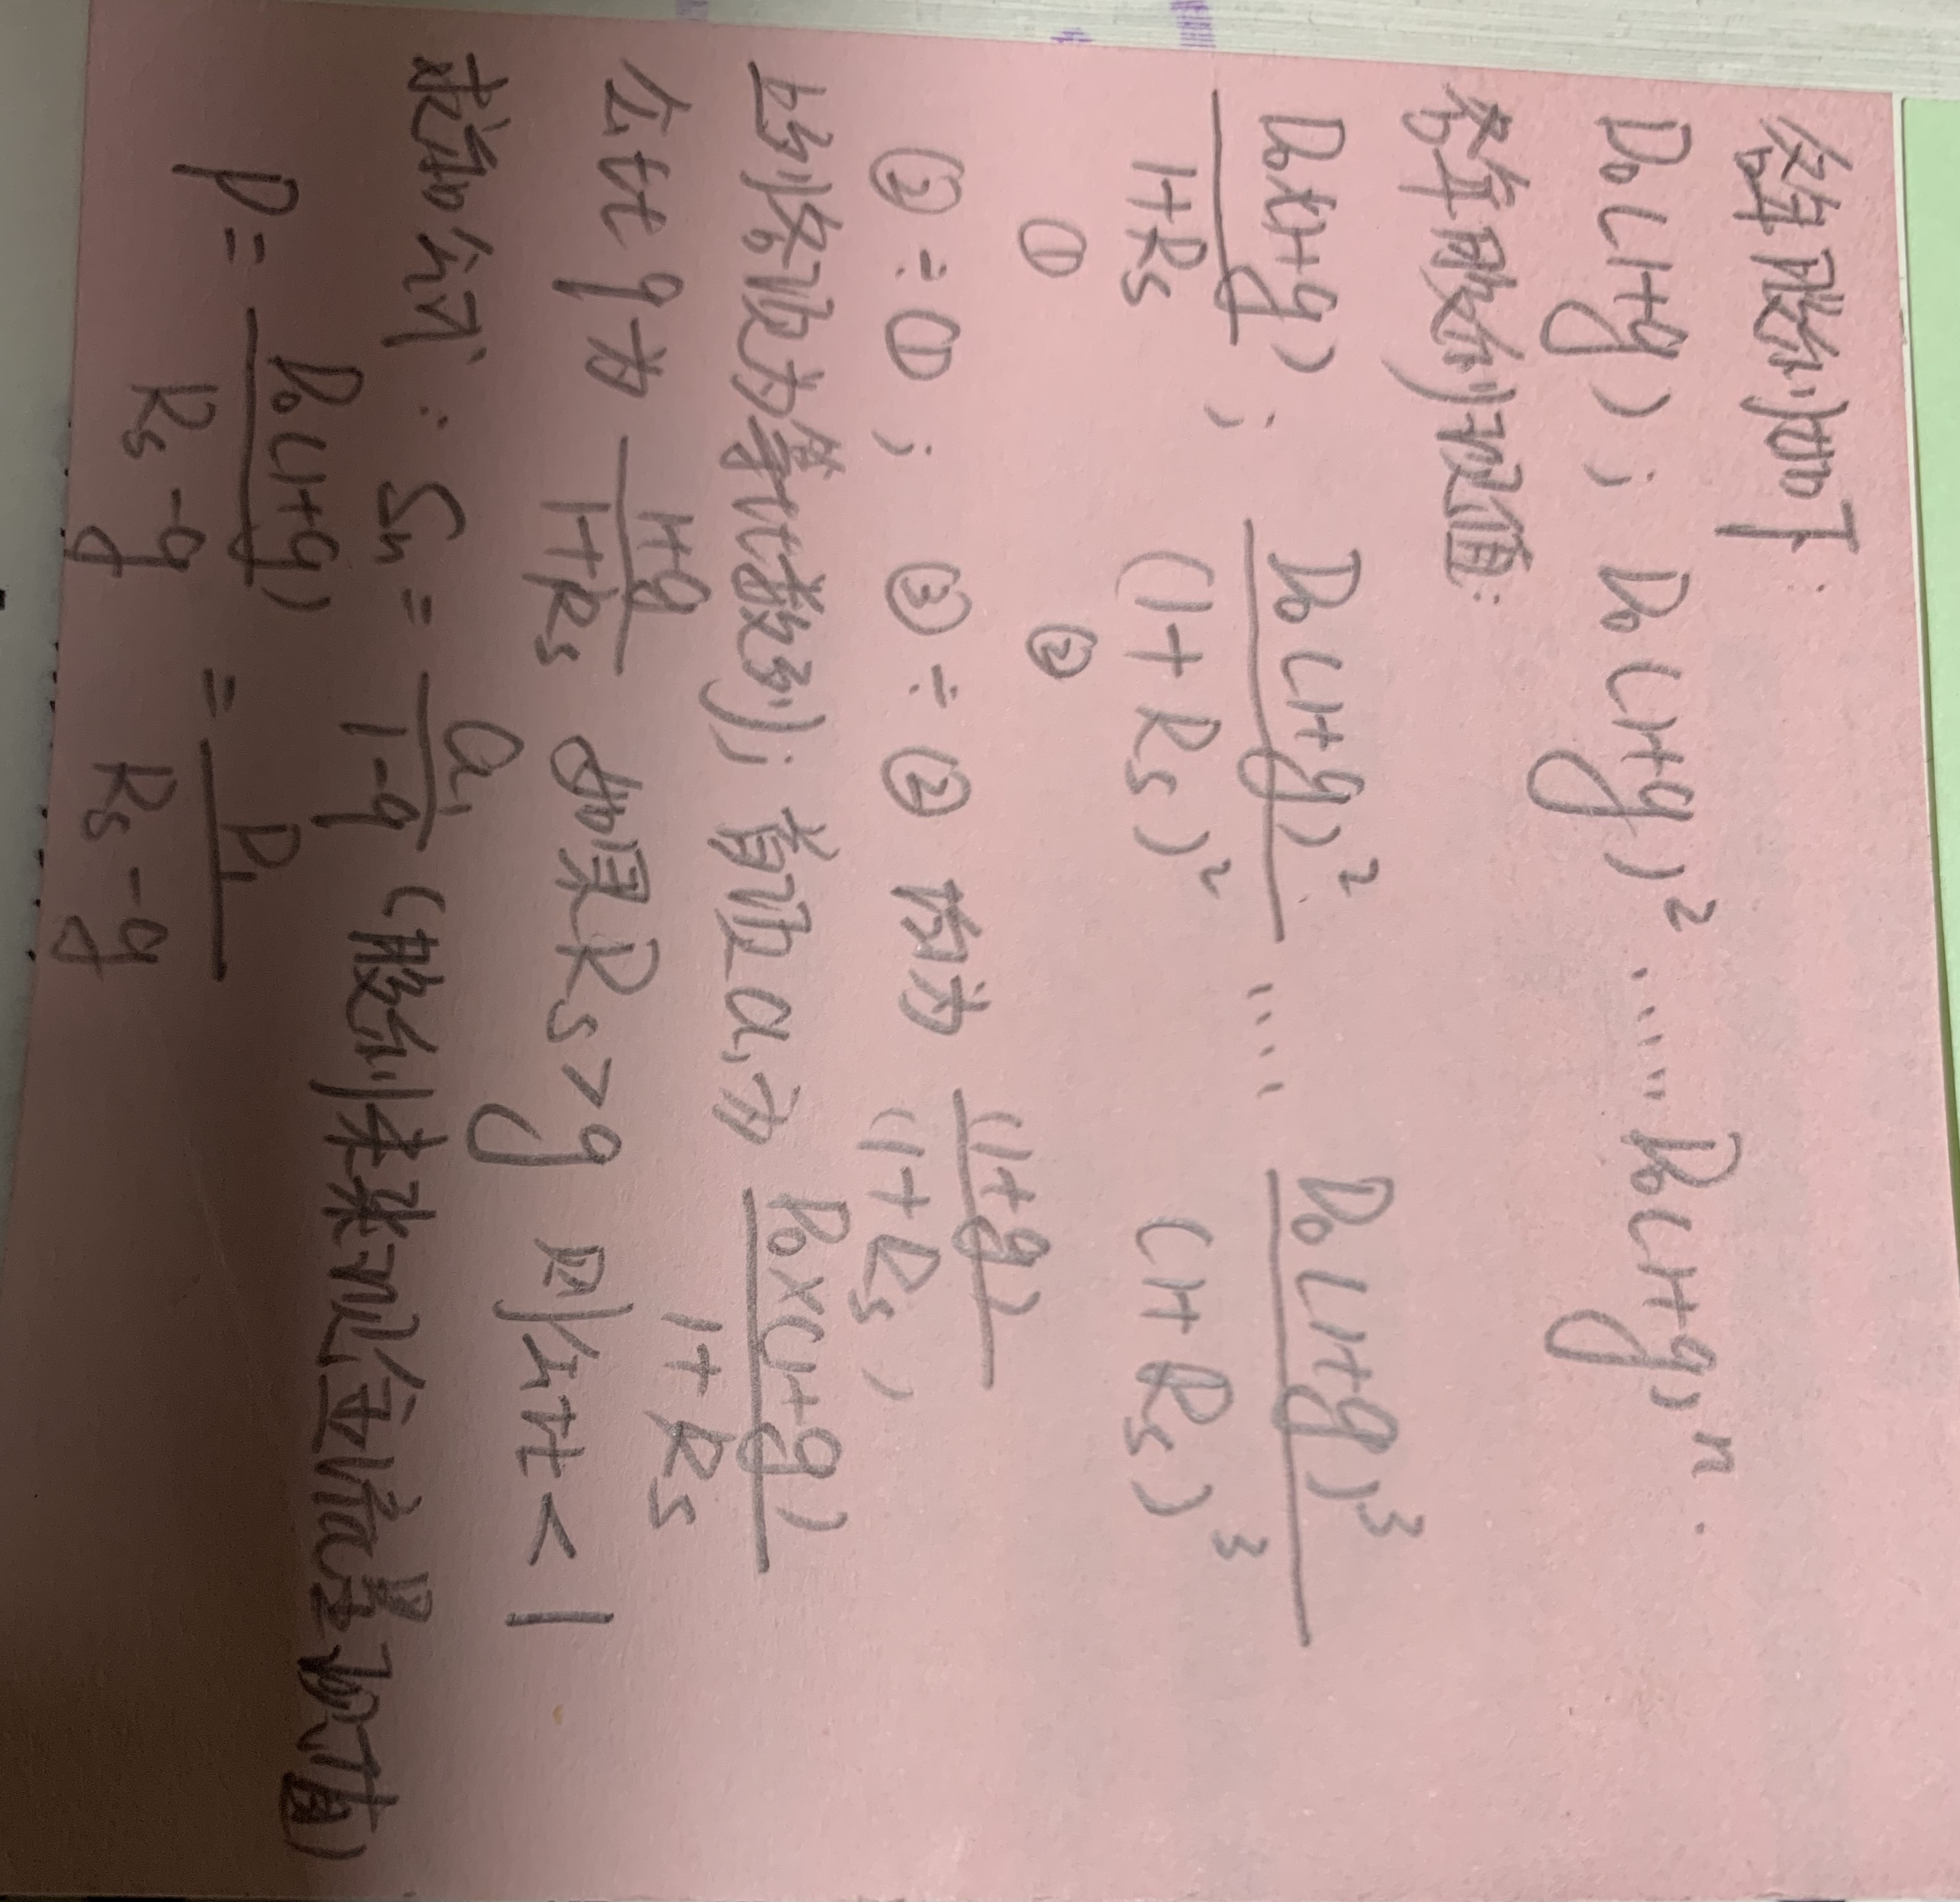 各年股利如下:
D₀(1+g); D₀(1+g)² …… D₀(1+g)ⁿ.
各年股利现值:
D₀×(1+g)/1+Rs; D₀(1+g)²/(1+Rs)² … D₀(1+g)³/(1+Rs)³
① ②
②÷①; ③÷② 均为 (1+g)/(1+Rs),
上列各项为等比数列; 首项a₁为 D₀×(1+g)/1+Rs
公比q为 1+g/1+Rs 如果Rs>g 则公比<1
求和公式: Sn = a₁/1-q (股利未来现金流量现值)
P = D₀(1+g)/Rs-g = D₁/Rs-g